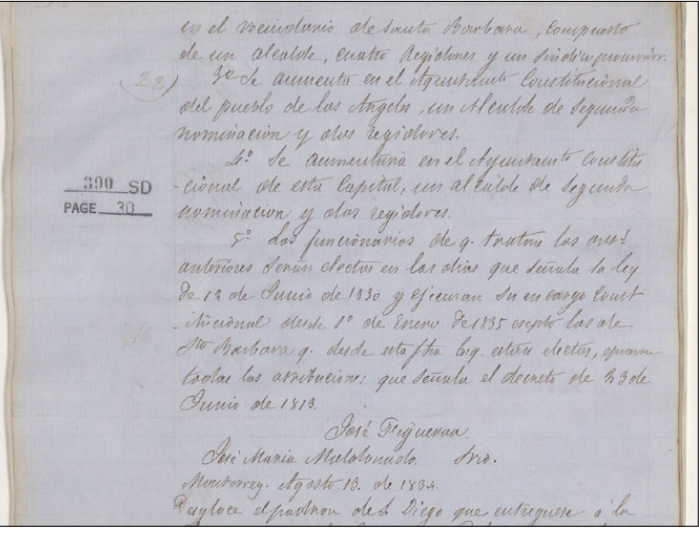 en el vecindario de Santa Barbara, compuesto
de un alcalde, cuatro Regidores y un sindico procurador.
(22) 3o Se aumenta en el Ayuntamto Constitucional
del pueblo de los Angeles, un Alcalde de Segunda
nominacion y dos regidores.
4.o Se aumentara en el Ayuntamto Constitu
390 SD
-cional de esta Capital, un alcalde de Segunda
PAGE 30
nominacion y dos regidores.
5o Los funcionarios de q. tratan los
anteriores serán electos en los dias que señala la ley
de 12 de Junio de 1830 y su encargo Const
-itucional desde 1o de Enero de 1835 los de
Sta Barbara q. desde esta fha están electos,
todas las atribuciones que señala el decreto de 23 de
Junio de 1813.
José Figueroa
José Maria Maldonado. Srio.
Monterrey. Agosto. 13. de 1834.
el padron de S. Diego que entreguese á la